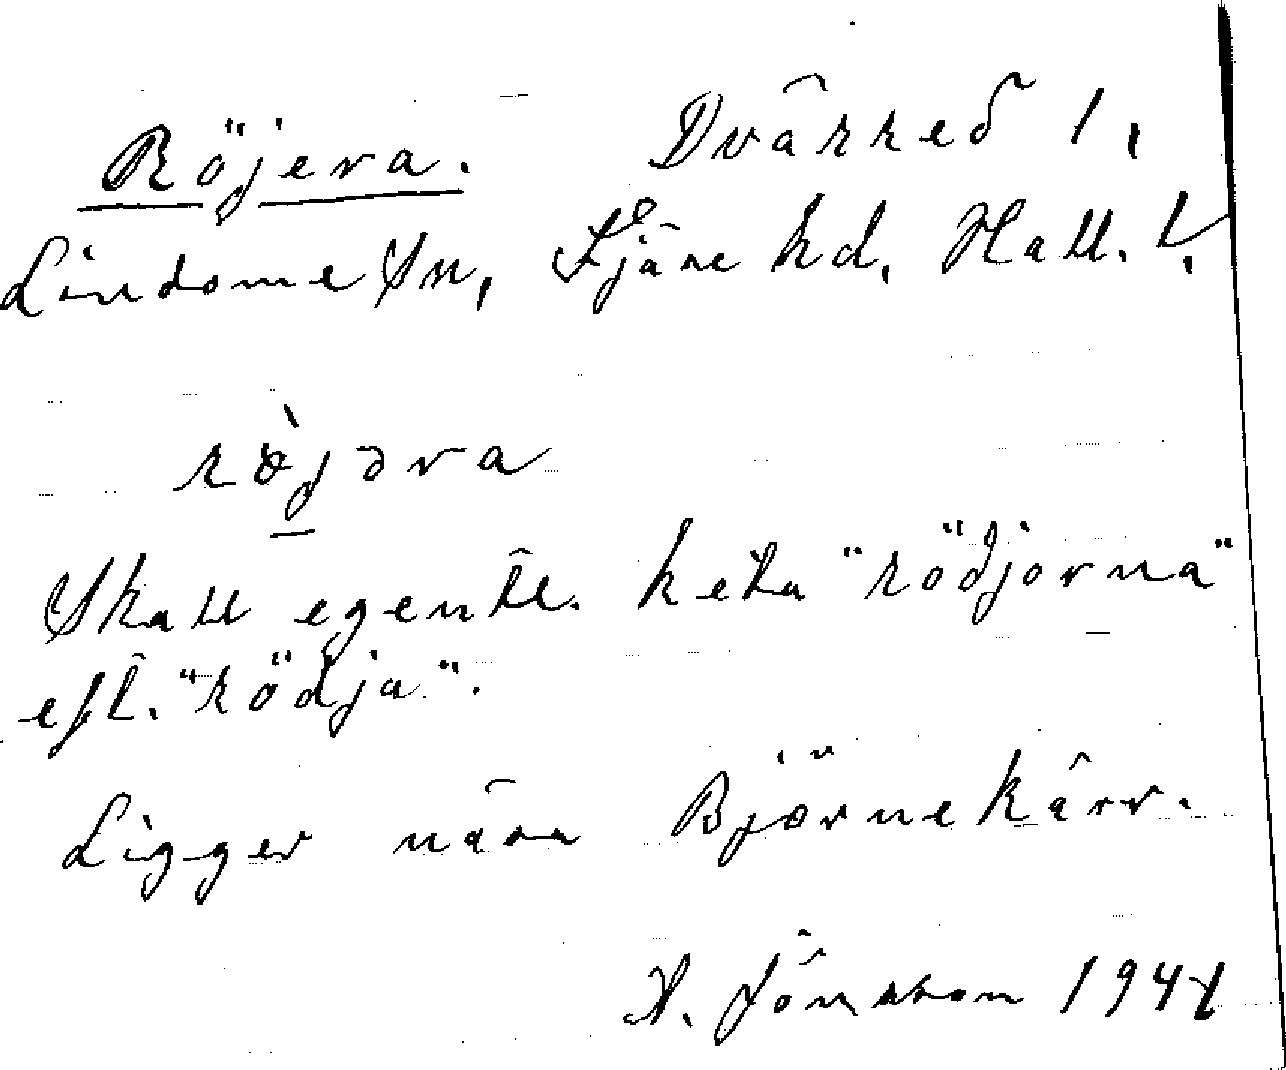 Röjera. Dvärred 1,
Lindome Sn, Fjäre hd, Hall. l.
röjəra
Skall egentl. heta "rödjorna"
eft. "rödja".
Ligger nära Björnekärr.
A. Jönsson 1941